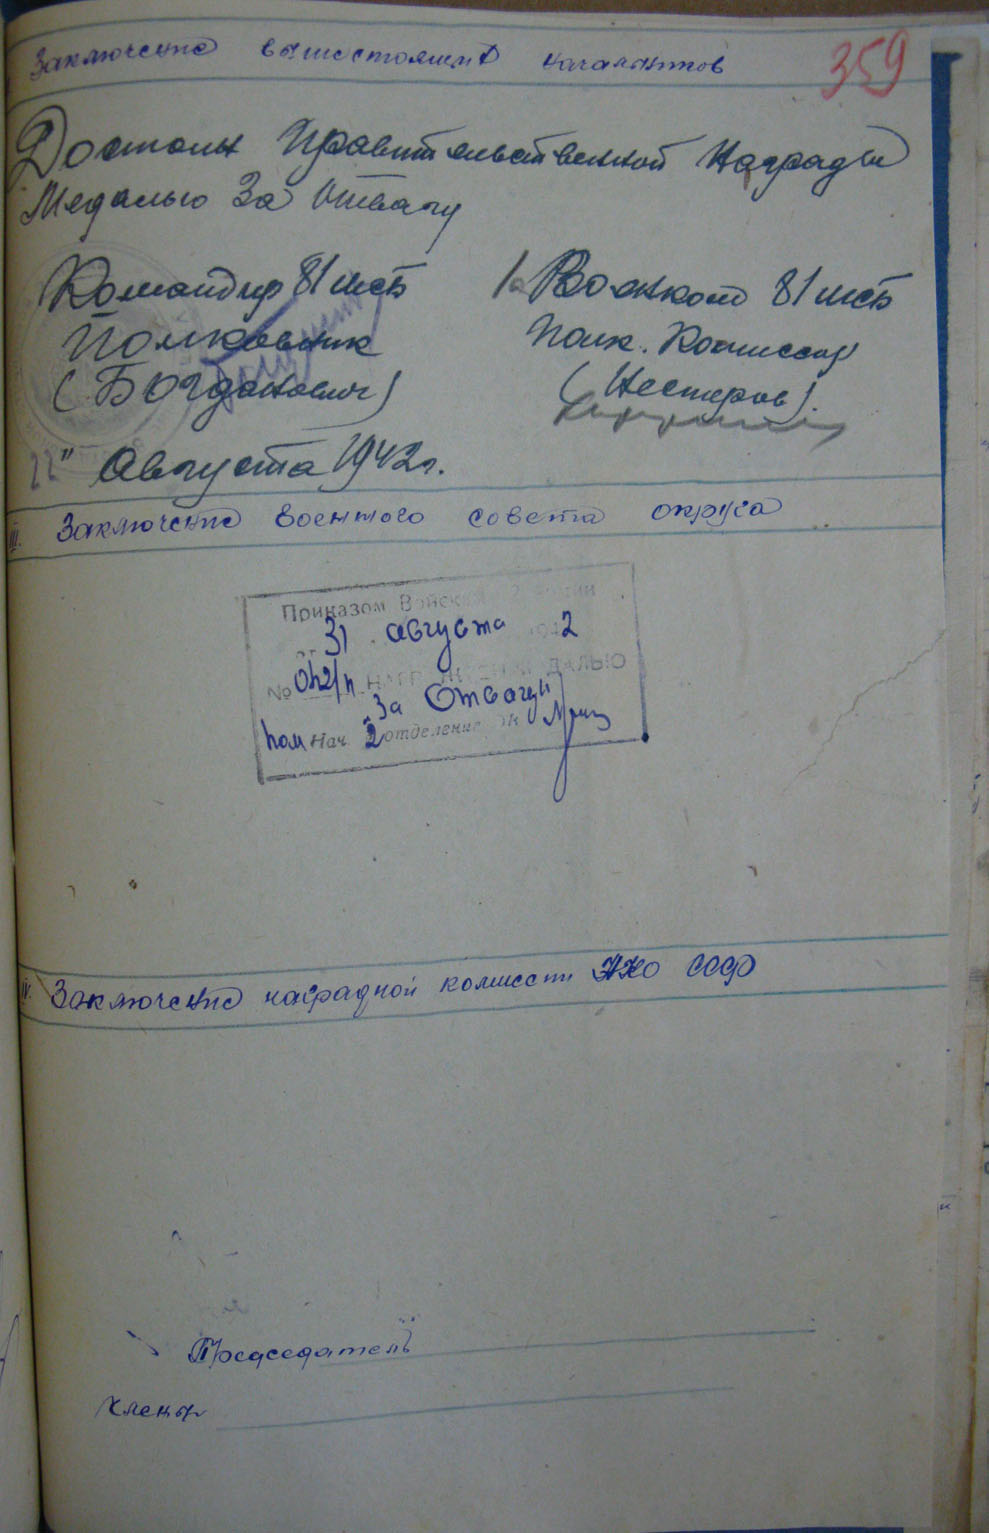 359
Заключение вышестоящих
Достоин Правительственной Награды
Медалью За Отвагу
Командир 81 мсб
Полковник
(Богданович)
Военком 81 мсб
Полк. Комиссар
(Нестеров).
22" Августа 1942г.
III. Заключение военного совета округа
Приказом Войска
от 31 августа 1942
№ 042/н
"За Отвагу"
Пом Нач 2 отделение
IV. Заключение наградной комиссии НКО СССР
Председатель
Члены